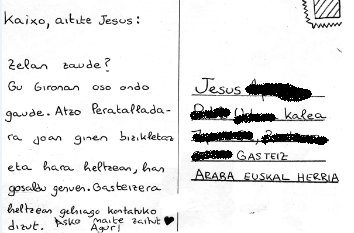 Kaixo, aitite Jesus:
Zelan zaude?
Gu Gironan oso ondo
gaude. Atzo Peratallada-
ra joan ginen bizikletaz
eta hara heltzean, han
gosaldu genuen. Gasteizera
heltzean gehiago kontatuko
dizut. Asko maite zaitut
Agur!
Jesus
kalea
GASTEIZ
ARABA EUSKAL HERRIA